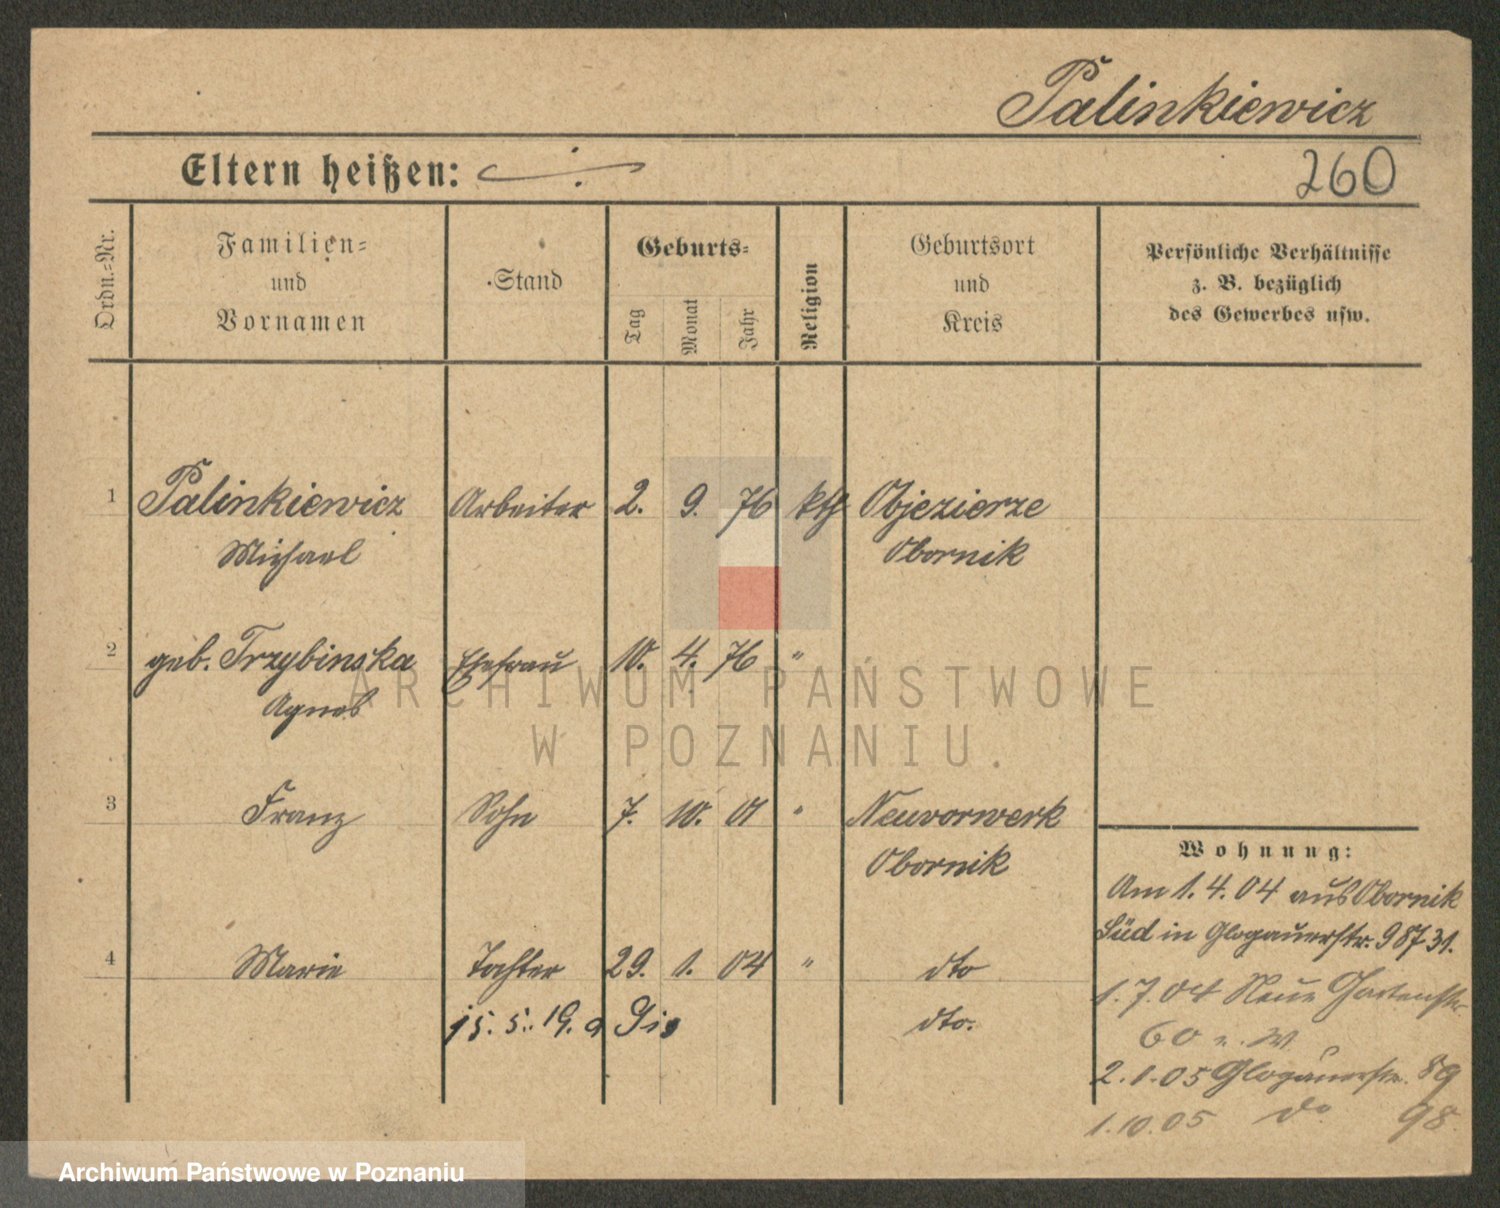 Palinkiewicz
Eltern heißen:
260
Ordn.-Nr.
Familien- und Vornamen
Stand
Geburts-
Tag Monat Jahr
Religion
Geburtsort und Kreis
Persönliche Verhältnisse
z. B. bezüglich
des Gewerbes usw.
1 Palinkiewicz Arbeiter 2. 9. 76 kth Objezierze
Michael Obornik
2 geb. Trzybinska Ehefrau 10. 4. 76 "
Agnes
3 Franz Sohn 7. 10. 01 " Neuvorwerk
Obornik
4 Marie Tochter 29. 1. 04 " dto
15. 5. 19. dto.
Wohnung:
Am 1. 4. 04 aus Obornik
Süd in Glogauerstr. 98
1. 7. 04 Neue Gartenstr.
60
2. 1. 05 Glogauerstr. 89
1. 10. 05 do 98.
ARCHIWUM PAŃSTWOWE
W POZNANIU.
Archiwum Państwowe w Poznaniu